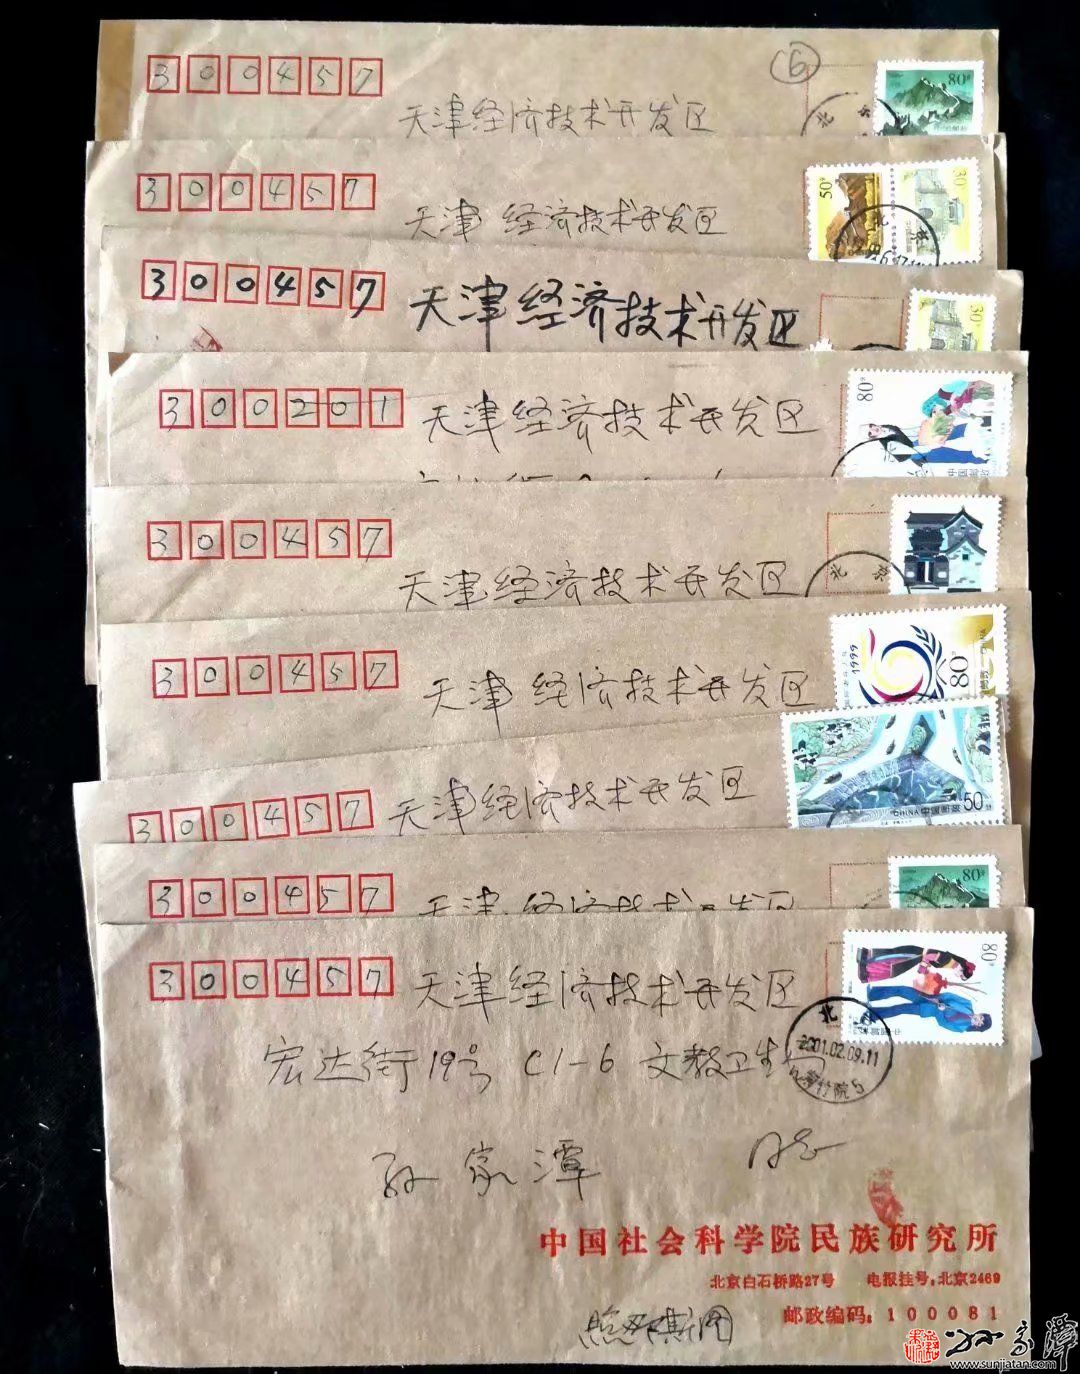 300457
⑥
80分
天津经济技术开发区
北京
300457
50分
30分
天津经济技术开发区
300457
30分
天津经济技术开发区
300201
80分
天津经济技术开发区
中国邮政
300457
天津经济技术开发区
北京
300457
1999
80分
天津经济技术开发区
300457
天津经济技术开发区
CHINA 中国邮政 50分
300457
80分
天津经济技术开发区
300457
80分
天津经济技术开发区
中国邮政
北京
2001.02.09.11
紫竹院5
宏达街19号 C1-6 文教卫生
孙家潭
中国社会科学院民族研究所
北京白石桥路27号 电报挂号:北京2469
邮政编码:100081
照那斯图
孙家潭
www.sunjiatan.com